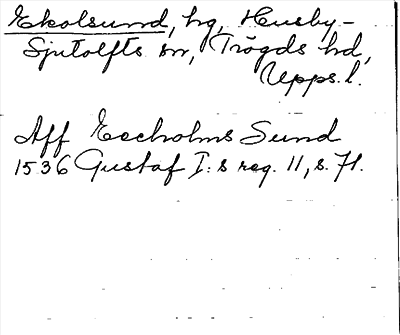 Ekolsund, hg, Husby-
Sjutolfts sn, Trögds hd,
Upps. l.
Aff Eecholms Sund
1536 Gustaf I:s reg. 11, s. 71.